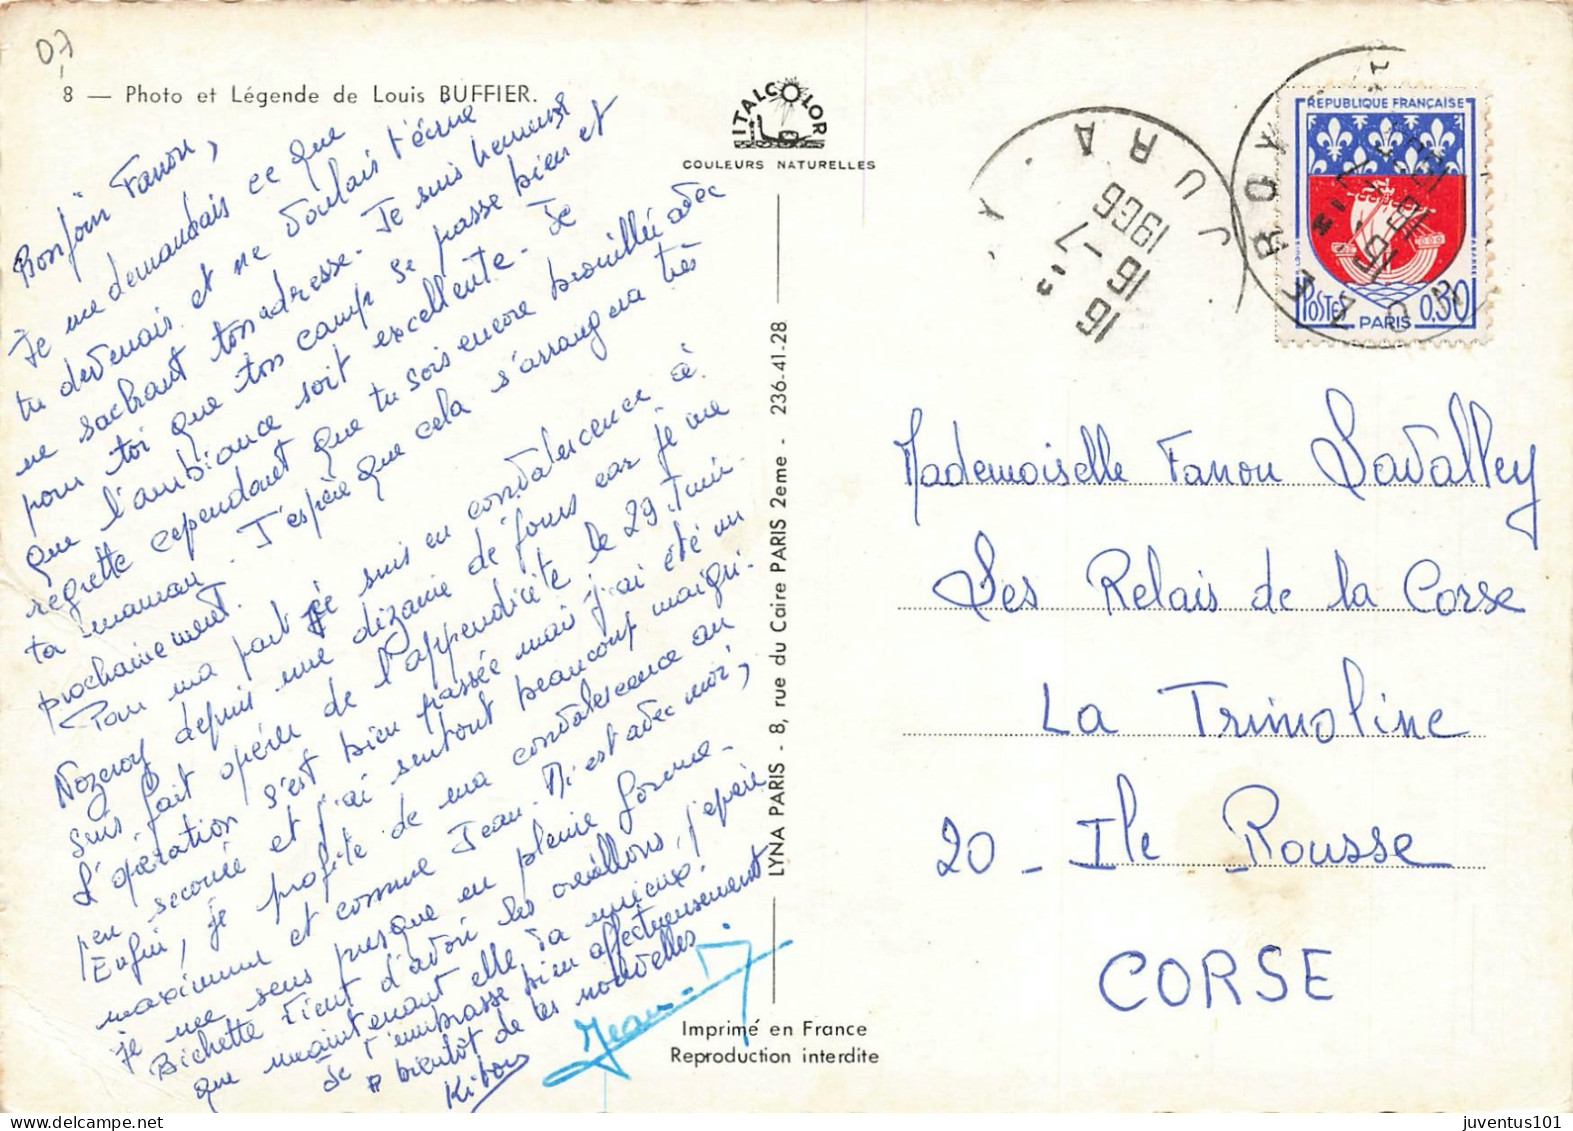 07
8 — Photo et Légende de Louis BUFFIER.
ITALCOLOR
COULEURS NATURELLES
Bonjour Fanou,
Je me demandais ce que
tu devenais et ne voulais t'écrire
ne sachant ton adresse. Je suis heureuse
pour toi que ton camp se passe bien et
que l'ambiance soit excellente. Je
regrette cependant que tu sois encore brouillée avec
ta maman. J'espère que cela s'arrangera très
prochainement.
Pour ma part je suis en convalescence à
Nozeroy depuis une dizaine de jours car je me
suis fait opérer de l'appendicite le 29 Juin.
L'opération s'est bien passée mais j'ai été un
peu secouée et j'ai surtout beaucoup maigri.
Enfin, je profite de ma convalescence au
maximum et comme Jean. Mi est avec moi,
je me sens presque en pleine forme.
Bichette vient d'avoir les oreillons, j'espère
que maintenant elle va mieux!
Je t'embrasse bien affectueusement
à bientôt de tes nouvelles
Kibou
Jean-M
LYNA PARIS - 8, rue du Caire PARIS 2eme - 236-41-28
Imprimé en France
Reproduction interdite
16 H
16 -7
1966
JURA
NOZEROY
REPUBLIQUE FRANÇAISE
POSTES 0,30
PARIS
Mademoiselle Fanou Lavalley
Les Relais de la Corse
La Trimoline
20 - Ile Rousse
CORSE
juventus101